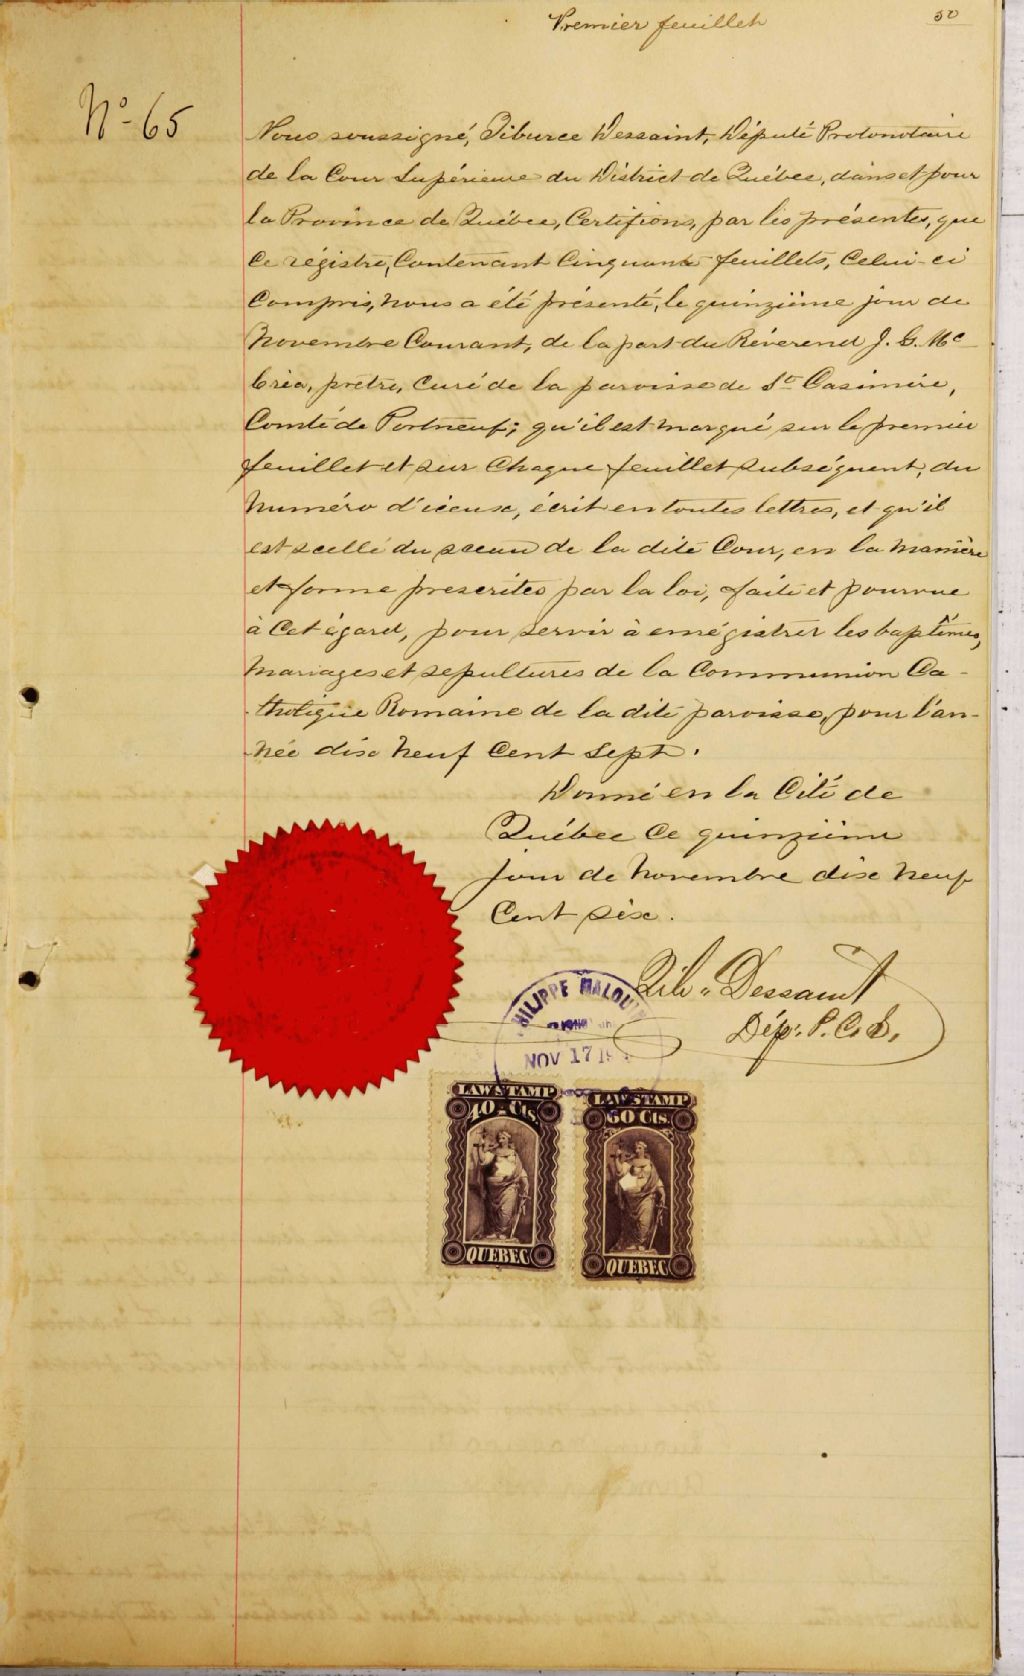 Premier feuillet
50
No 65
Nous soussigné, Tiburce Dessaint, Député Protonotaire
de la Cour Supérieure du District de Québec, dans et pour
la Province de Québec, Certifions, par les présentes, que
ce régistre, Contenant Cinquante feuillets, Celui-ci
Compris, nous a été présenté, le quinzième jour de
Novembre Courant, de la part du Révérend J. G. Mc
Créa, prêtre, Curé de la paroisse de St Casimire,
Comté de Portneuf; qu'il est marqué sur le premier
feuillet et sur Chaque feuillet subséquent, du
Numéro d'iceux, écrit en toutes lettres, et qu'il
est scellé du sceau de la dite Cour, en la manière
et forme prescrites par la loi, faite et pourvue
à Cet égard, pour servir à enrégistrer les baptêmes,
Mariages et sépultures de la Communion Ca-
tholique Romaine de la dite paroisse, pour l'an-
née dix Neuf Cent Sept.
Donné en la Cité de
Québec Ce quinzième
jour de Novembre dix Neuf
Cent six.
Tib. Dessaint
Dép. P. C. S.
PHILIPPE MALOUIN
NOV 17 19
LAW STAMP
40 Cts.
QUEBEC
LAW STAMP
60 Cts.
QUEBEC